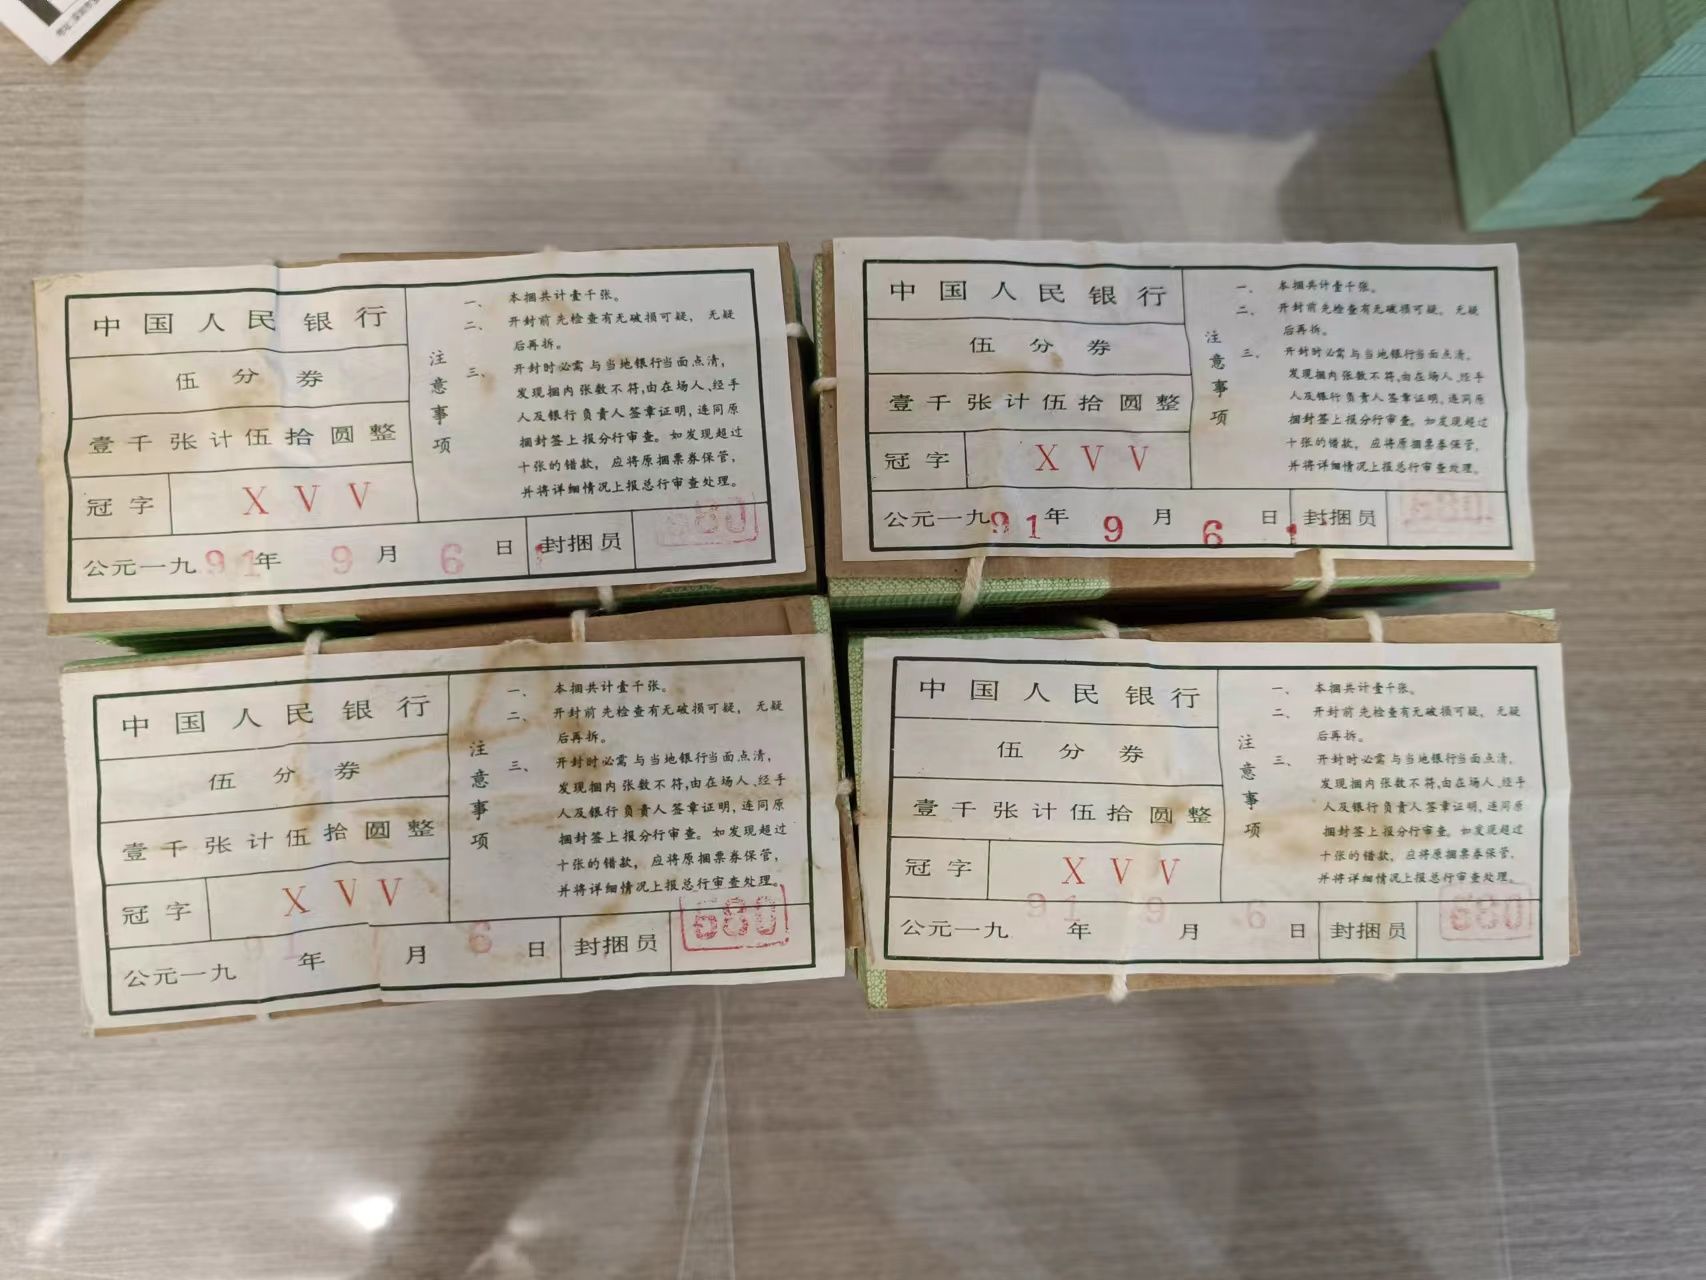 中国人民银行
伍分券
壹千张计伍拾圆整
冠字 XVV
公元一九91年9月6日 封捆员 680
注意事项
一、本捆共计壹千张。
二、开封前先检查有无破损可疑，无疑
后再拆。
三、开封时必需与当地银行当面点清，
发现捆内张数不符,由在场人、经手
人及银行负责人签章证明，连同原
捆封签上报分行审查。如发现超过
十张的错款，应将原捆票券保管，
并将详细情况上报总行审查处理。
中国人民银行
伍分券
壹千张计伍拾圆整
冠字 XVV
公元一九91年9月6日 封捆员
注意事项
一、本捆共计壹千张。
二、开封前先检查有无破损可疑，无疑
后再拆。
三、开封时必需与当地银行当面点清，
发现捆内张数不符,由在场人、经手
人及银行负责人签章证明，连同原
捆封签上报分行审查。如发现超过
十张的错款，应将原捆票券保管，
并将详细情况上报总行审查处理。
中国人民银行
伍分券
壹千张计伍拾圆整
冠字 XVV
公元一九91年 月6日 封捆员 680
注意事项
一、本捆共计壹千张。
二、开封前先检查有无破损可疑，无疑
后再拆。
三、开封时必需与当地银行当面点清，
发现捆内张数不符,由在场人、经手
人及银行负责人签章证明，连同原
捆封签上报分行审查。如发现超过
十张的错款，应将原捆票券保管，
并将详细情况上报总行审查处理。
中国人民银行
伍分券
壹千张计伍拾圆整
冠字 XVV
公元一九91年9月6日 封捆员 680
注意事项
一、本捆共计壹千张。
二、开封前先检查有无破损可疑，无疑
后再拆。
三、开封时必需与当地银行当面点清，
发现捆内张数不符,由在场人、经手
人及银行负责人签章证明，连同原
捆封签上报分行审查。如发现超过
十张的错款，应将原捆票券保管，
并将详细情况上报总行审查处理。